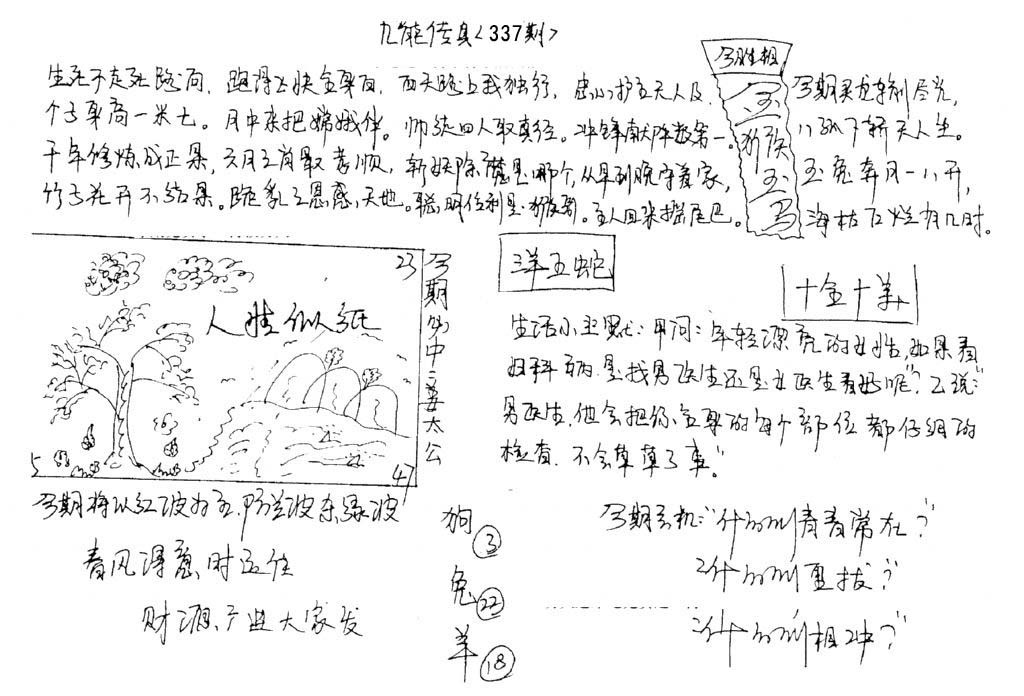 九龍传真<337期>
今期生相
玉
猴
玉
马
生死不走死路向,跑得飞快全身白,西天路上我独行,忠心护主无人及,
今期买尽
个子身高一米七。月中来把嫦娥伴。师徒四人取真经。冲锋献阵数第一。
八
千年修炼成正果,六月三肖最孝顺,斩妖除魔是哪个,从早到晚守着家,
玉兔奔月一八开,
竹子花开不结果。跪乳之恩感天地。聪明伶俐是猕猴。主人回来摇尾巴。
海枯石烂有几时。
23
人性似纸
5
47
今期外中一姜太公
三羊五蛇
十全十美
生活小幽默:甲问:年轻漂亮的女性,如果看
妇科病是找男医生还是女医生看好呢?乙说:
男医生,他会把你全身的每个部位都仔细的
检查,不会草草了事。"
今期将以红波为主,防兰波杂绿波
春风得意时运佳
财源产进大家发
狗③
兔㉒
羊⑱
今期玄机:"什么叫青春常在?"
2什么叫
三什么叫相冲?"